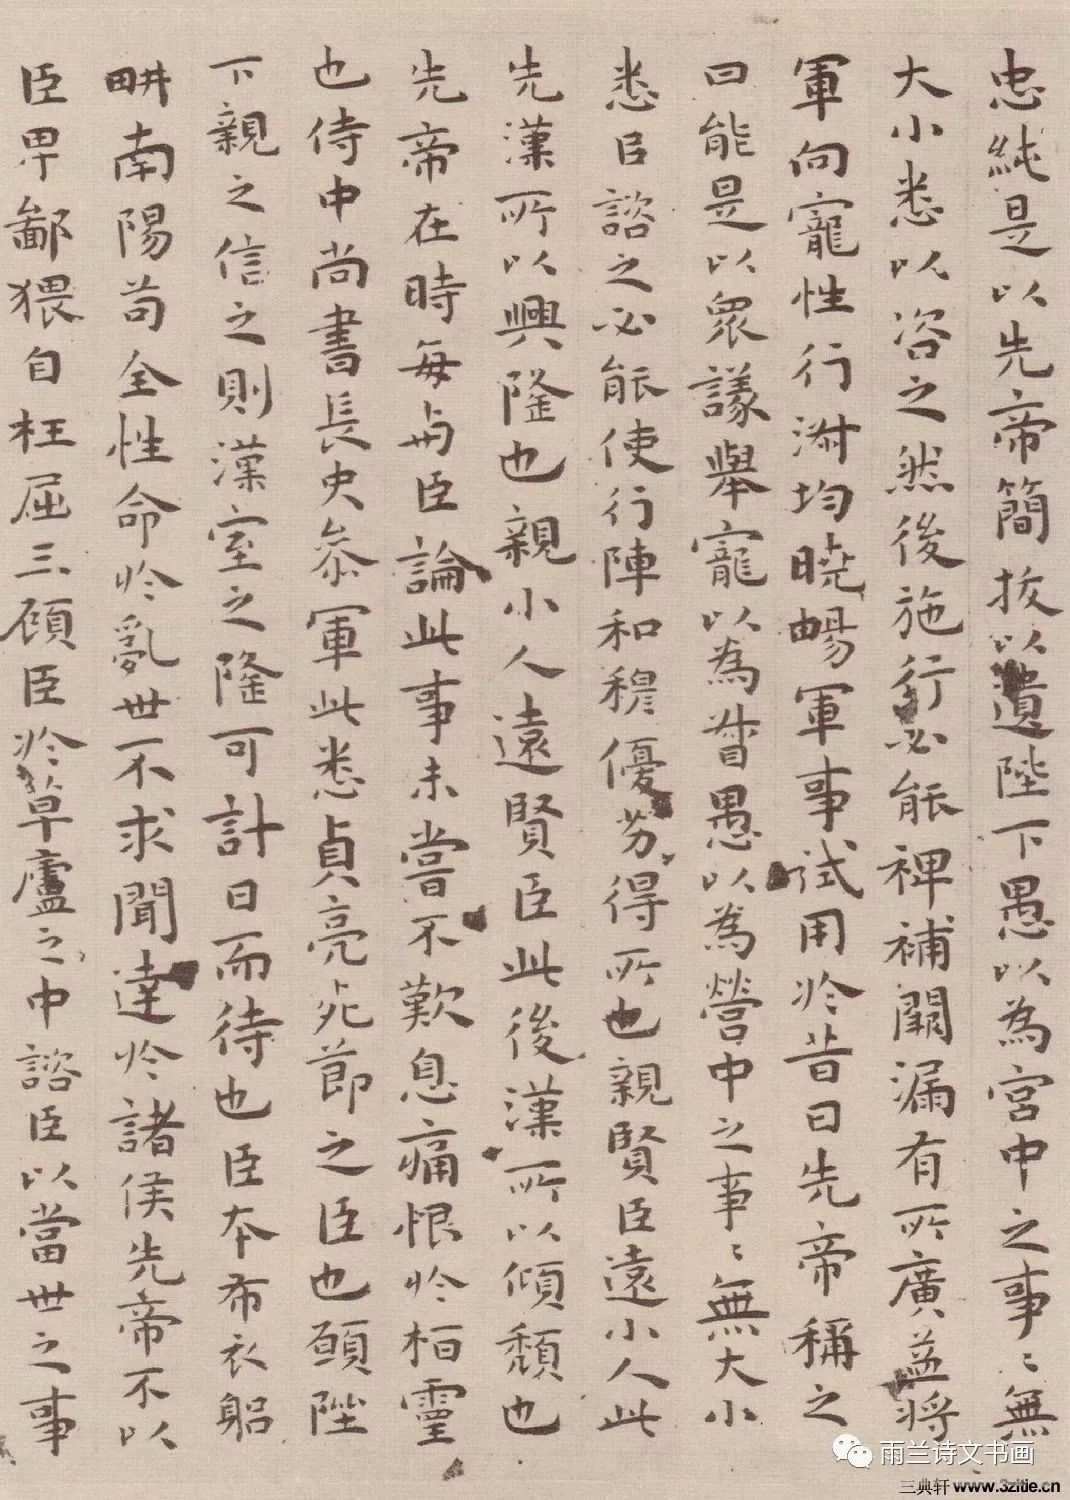 忠純是以先帝簡拔以遺陛下愚以為宮中之事〻無
大小悉以咨之然後施行必能裨補闕漏有所廣益將
軍向寵性行淑均曉暢軍事試用於昔日先帝稱之
曰能是以眾議舉寵以為督愚以為營中之事〻無大小
悉以諮之必能使行陣和穆優劣得所也親賢臣遠小人此
先漢所以興隆也親小人遠賢臣此後漢所以傾頹也
先帝在時每與臣論此事未嘗不歎息痛恨於桓靈
也侍中尚書長史參軍此悉貞亮死節之臣也願陛
下親之信之則漢室之隆可計日而待也臣本布衣躬
耕南陽苟全性命於亂世不求聞達於諸侯先帝不以
臣卑鄙猥自枉屈三顧臣於草廬之中諮臣以當世之事
雨兰诗文书画
三典轩 www.3zitie.cn